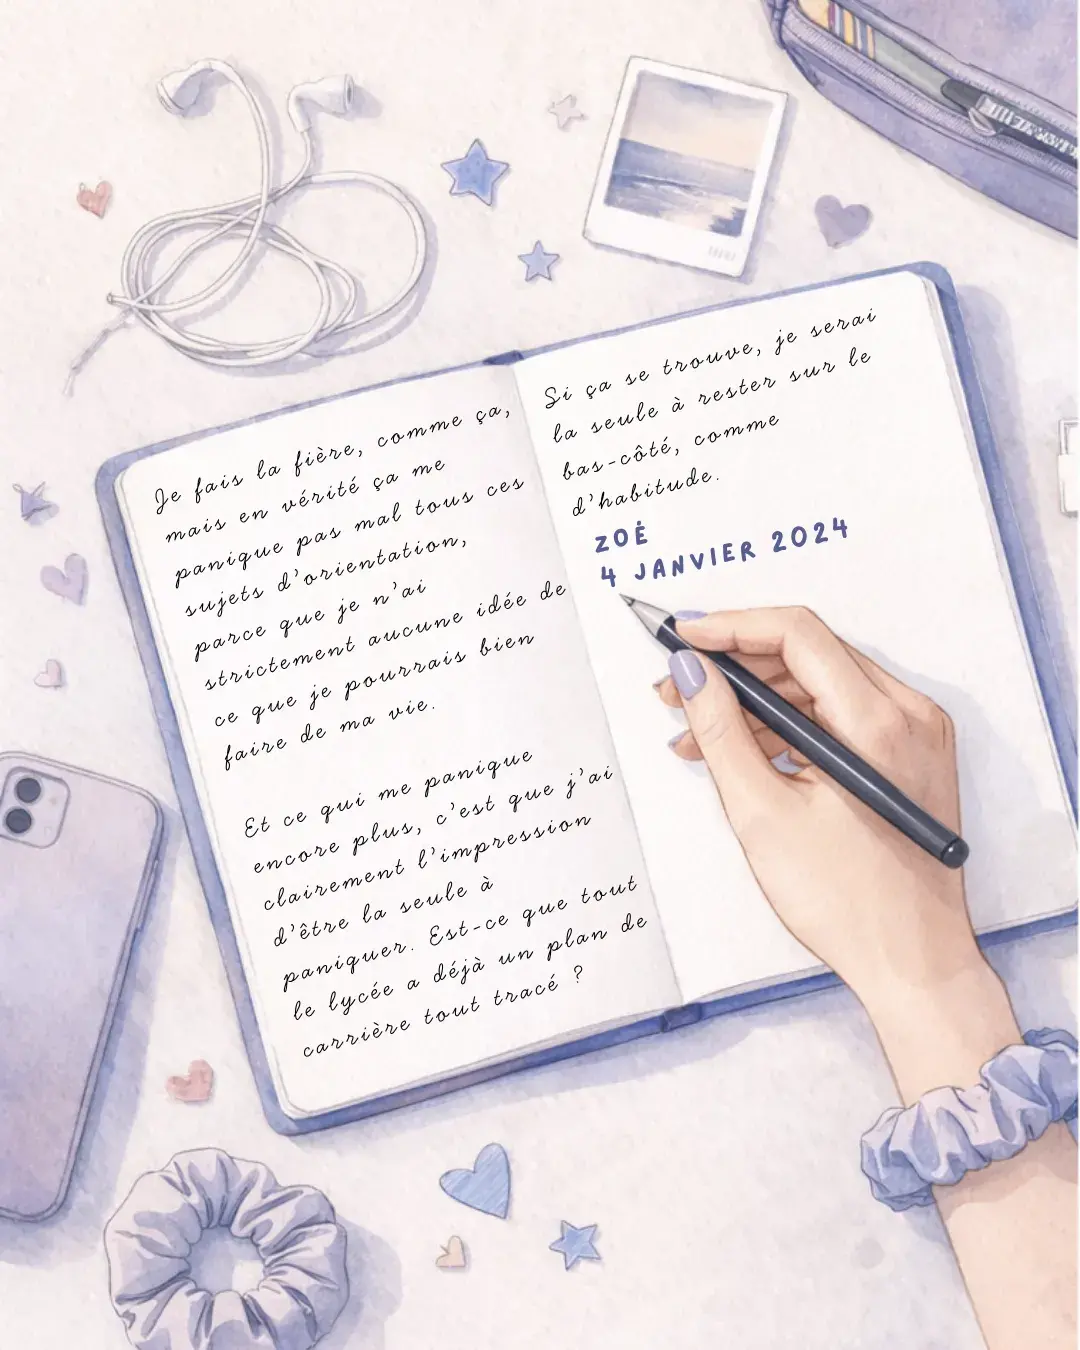 Je fais la fière, comme ça,
mais en vérité ça me
panique pas mal tous ces
sujets d'orientation,
parce que je n'ai
strictement aucune idée de
ce que je pourrais bien
faire de ma vie.
Et ce qui me panique
encore plus, c'est que j'ai
clairement l'impression
d'être la seule à
paniquer. Est-ce que tout
le lycée a déjà un plan de
carrière tout tracé ?
Si ça se trouve, je serai
la seule à rester sur le
bas-côté, comme
d'habitude.
ZOÉ
4 JANVIER 2024